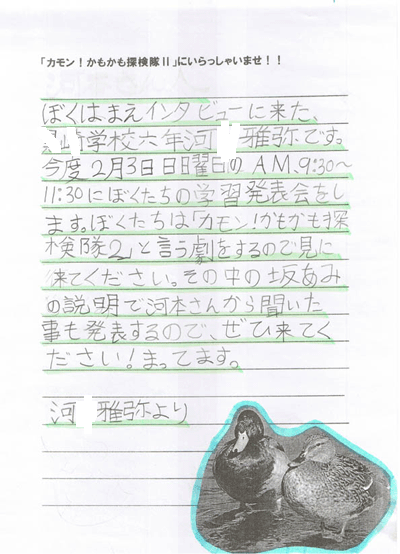 「カモン！かもかも探検隊Ⅱ」にいらっしゃいませ！！
ぼくはまえインタビューに来た、
学校六年河 雅弥です。
今度2月3日日曜日のA.M.9:30～
11:30にぼくたちの学習発表会をし
ます。ぼくたちは「カモン!かもかも探
検隊2」と言う劇をするので見に
来てください。その中の坂あみ
の説明で河本さんから聞いた
事も発表するので、ぜひ来てく
ださい!まってます。
河 雅弥より